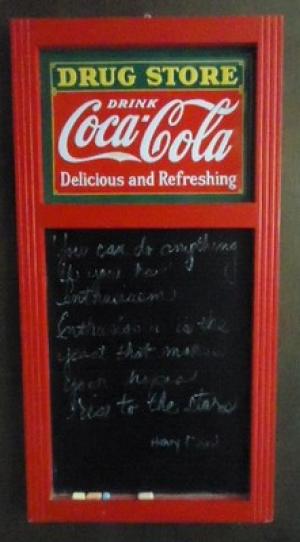 DRUG STORE
DRINK
Coca-Cola
Delicious and Refreshing
You can do anything
if you have
Enthusiasm
Enthusiasm is the
yeast that makes
your hopes
rise to the stars
Henry Ford